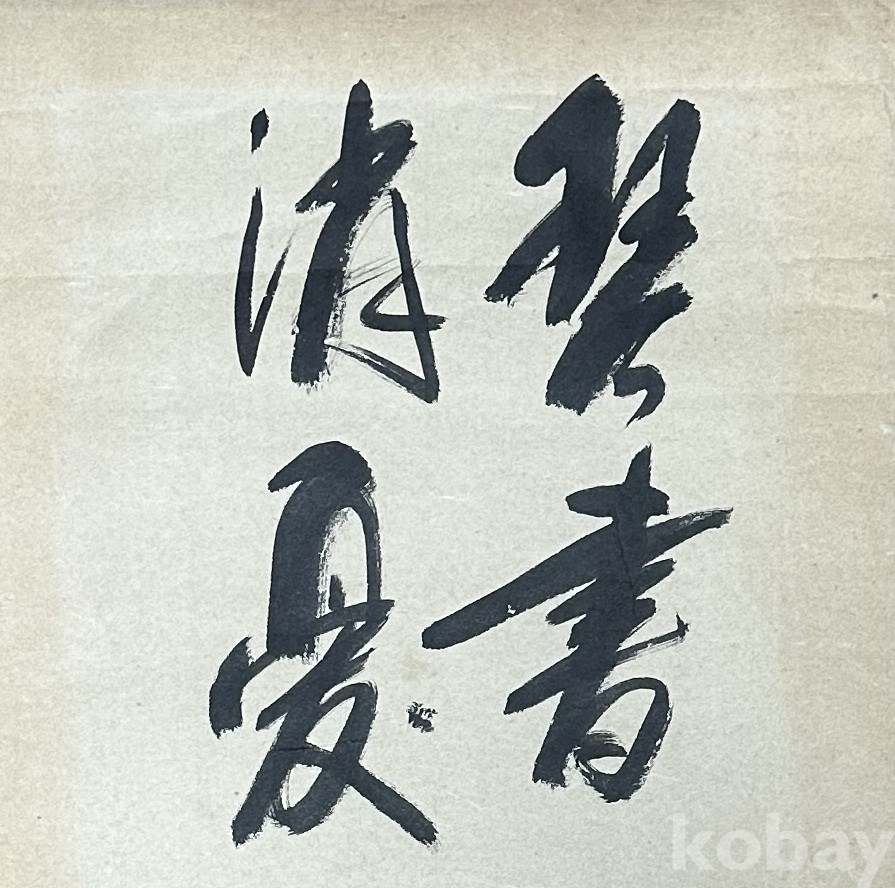 琴書
消憂
kobay